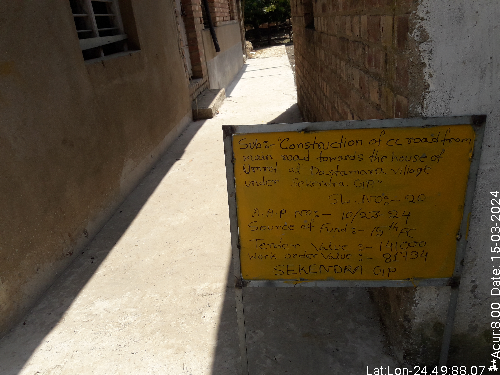 Sub:- "Construction of cc road from
main road towards the house of
at village
under GP"
SL. No:- 20
A.A.P No:- 10/2023-24
Source of fund:- 15th FC
Tender Value:- 141000
Work order Value:- 81794
SEKENDRA GP
Lat:Lon-24.49:88.07
**Acur:8.00 Date: 15-03-2024